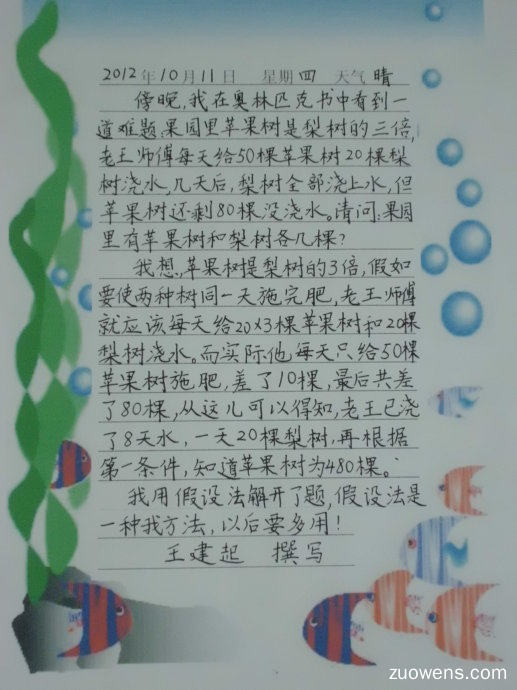 2012年10月11日 星期四 天气晴
傍晚,我在奥林匹克书中看到一
道难题:果园里苹果树是梨树的三倍,
老王师傅每天给50棵苹果树20棵梨
树浇水,几天后,梨树全部浇上水,但
苹果树还剩80棵没浇水。请问:果园
里有苹果树和梨树各几棵?
我想,苹果树提梨树的3倍,假如
要使两种树同一天施完肥,老王师傅
就应该每天给20×3棵苹果树和20棵
梨树浇水。而实际他每天只给50棵
苹果树施肥,差了10棵,最后共差
了80棵,从这儿可以得知,老王已浇
了8天水,一天20棵梨树,再根据
第一条件,知道苹果树为480棵。
我用假设法解开了题,假设法是
一种我方法,以后要多用!
王建起 撰写
zuowens.com